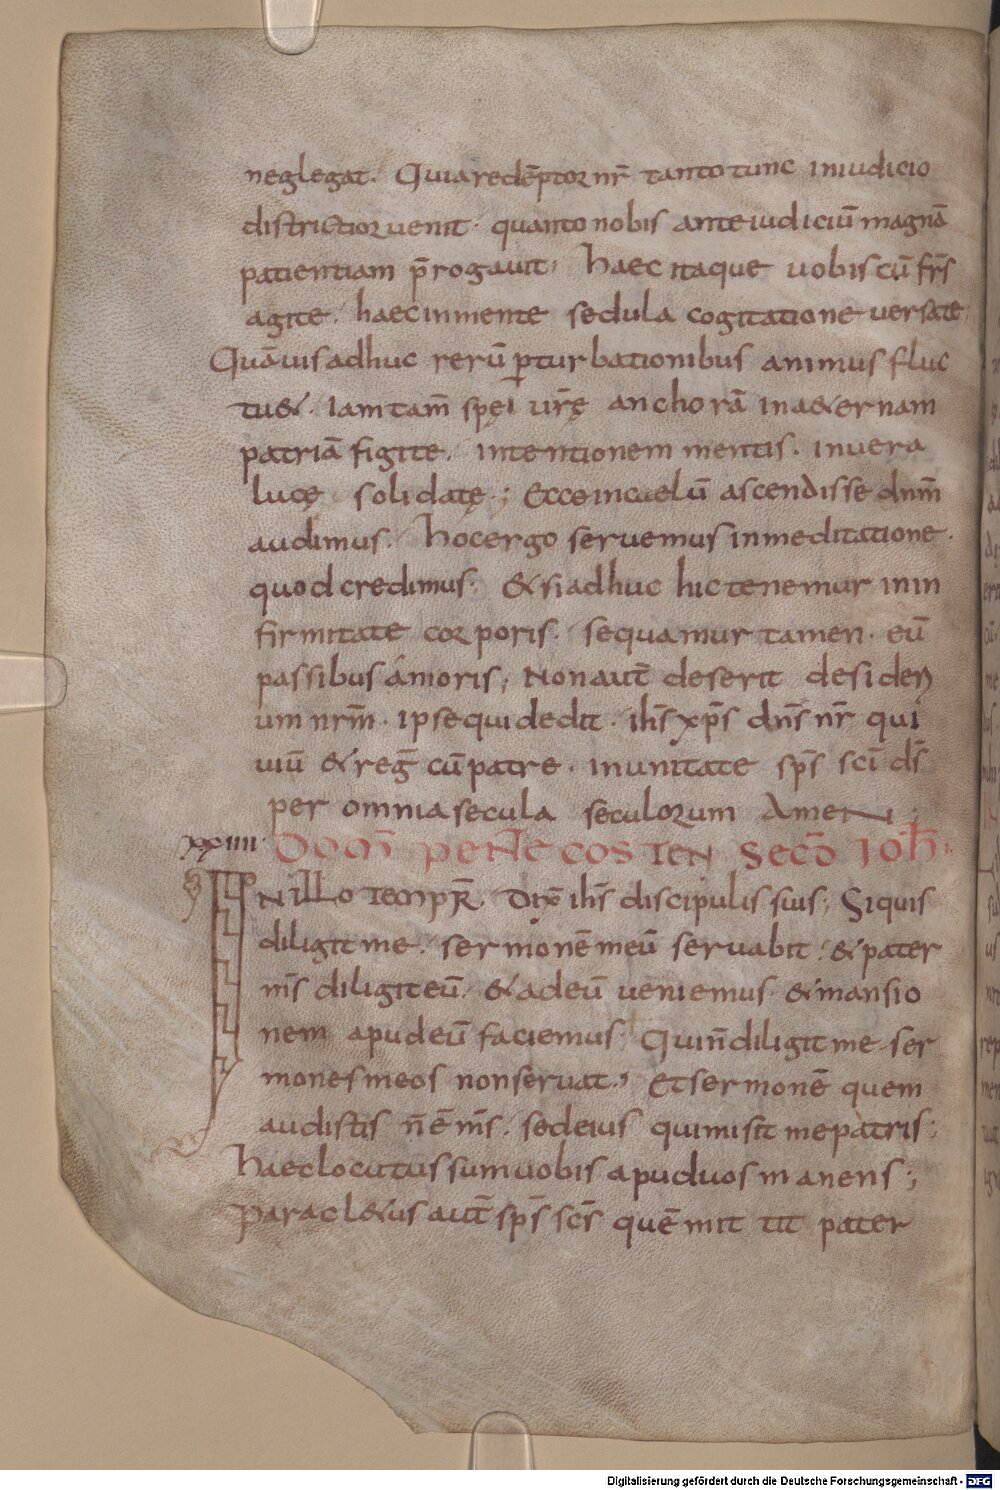 neglegat. Quia redēptor nr̄ tanto tunc iniudicio
districtior uenit. quanto nobis ante iudiciū magnā
patientiam p̄rogauit. Haec itaque uobiscū fr̄s
agite. haec inmente sedula cogitatione uersate.
Quāuis adhuc rerū ꝑturbationibus animus fluc
tu&. iam tam̄ spei ur̄ę anchorā in a&ernam
patriā figite. intentionem mentis. inuera
lucę solidatę; Ecce incaelū ascendisse dnm̄
audimus. hoc ergo seruemus inmeditatione.
quod credimus. & si adhuc hic tenemur in in
firmitate corporis. sequamur tamen. eū
passibus amoris; Non aut̄ deserit desideri
um nrm̄. ipse qui dedit. ihs̄ xp̄s dns̄ nr̄ qui
uiū & reḡ cū patre. inunitate sp̄s sc̄i ds̄
per omnia secula seculorum Amen;
xxiiii. Dom̄ pentecosten secd̄ Ioh̄.
In illo tempr̄. Dix̄ ihs̄ discipulis suis; Si quis
diligit me. sermonē meū seruabit. & pater
ms̄ diligit eū. & ad eū ueniemus. & mansio
nem apud eū faciemus. Qui n̄ diligit me. ser
mones meos non seruat; Et sermonē quem
audistis n̄ ē ms̄. sed eius qui misit me patris;
Haec locutus sum uobis apud uos manens;
paracl&us aut̄ sp̄s sc̄s quē mit tit pater
Digitalisierung gefördert durch die Deutsche Forschungsgemeinschaft - DFG